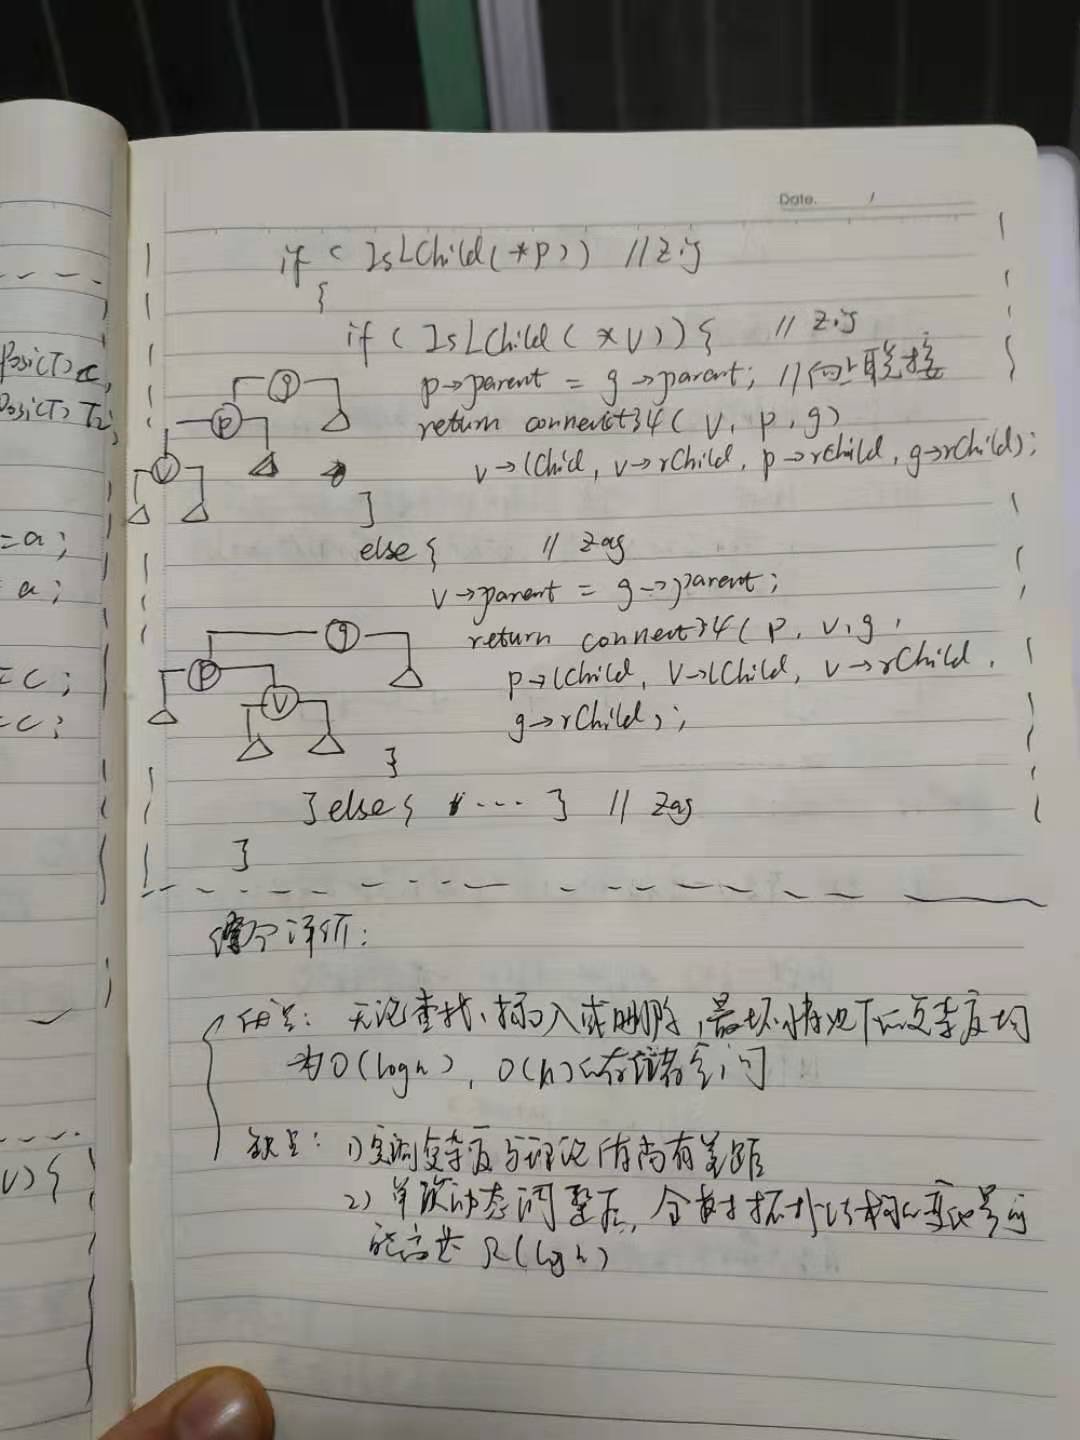 Date. /
if ( IsLChild(*p)) //zig
{
if ( IsLChild ( *v)) { // zig
p→parent = g→parent; //向上联接
return connect34( v, p, g)
v→lChild, v→rChild, p→rChild, g→rChild);
}
else { // zag
v→parent = g→parent;
return connect34( p, v, g,
p→lChild, v→lChild, v→rChild,
g→rChild);
}
} else { .... } // zag
}
g
p
v
g
p
v
综合评价:
优点: 无论查找、插入或删除, 最坏情况下的复杂度均
为O(logn), O(n)的存储空间
缺点: 1) 复杂度与理论值尚有差距
2) 单次动态调整后, 全树拓扑结构的变化量可
能高达 Ω(logn)
Posi(T) c,
Posi(T) T2,
= a;
= a;
= c;
= c;
;
v) {